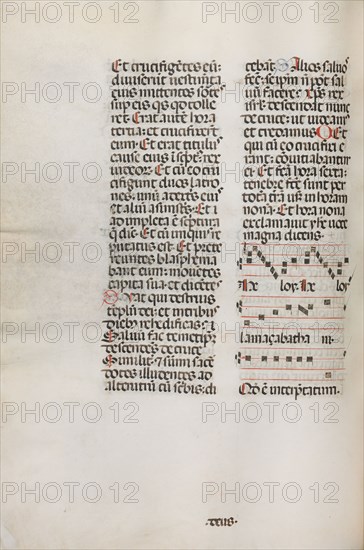 Et crucifigētes eū:
diuiserūt uestimēta
eius mittentes sortē
suꝑ eis q̄s qd tolle
ret. Erat autē hora
tertia: et crucifixerūt
eum. Et erat titulus
cause eius īscptꝰ. rex
iudeoꝝ. Et cū eo cru
cifigunt duos latro
nes. unū a dextris ei
et aliū a sīnistris. Et ī
ad impleta ē scptura
q̄ dic̄. Et cū iniqꝰs re
putatus est. Et prete
reuntes blasphema
bant eum: mouētes
capita sua: et dicētes
Vah qui destruis
tēplū dei: et in tribꝰ
diebꝫ rehedificas: S
Saluū fac temetipm
descendēs de cruce. C
Similit̄ et sūmi sace
dotes illudentes ad
alterutrū cū scbis: di
cebāt. Alios saluos
fec̄: seipm nō pōt sal
uū facere. Xp̄s rex
isrl: descendat nunc
de cruce: ut uideam
et credamus. Et
qui cū eo crucifixi e
rant: cōuitiabantur
ei. Et fc̄a hora sexta:
tenebre fc̄e sunt per
totā trā usꝗ in horam
nonā. Et hora nona
exclamauit yhs uoce
magna dicens.
Ix loy. Ix loy.
lamaçabatha ni.
Qd ē interp̄tatum.
.deus.
PHOTO12